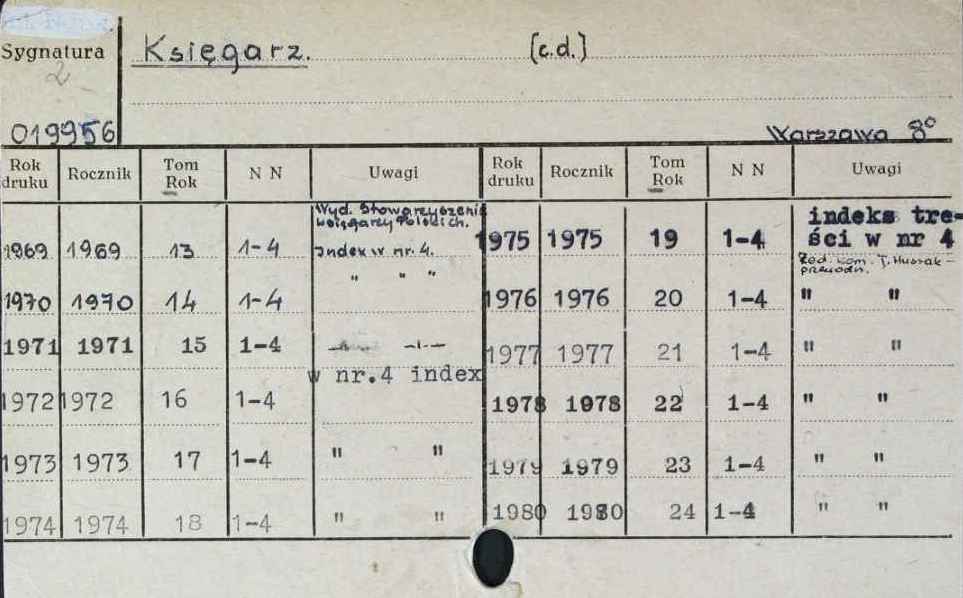 Sygnatura
2
Księgarz. (c.d.)
019956
Warszawa 8°
Rok druku Rocznik Tom Rok N N Uwagi Rok druku Rocznik Tom Rok N N Uwagi
Wyd. Stowarzyszenie
księgarzy Polskich.
1969 1969 13 1-4 Index w nr. 4. 1975 1975 19 1-4 indeks tre-
ści w nr 4
Red. kom.
przewodn.
1970 1970 14 1-4 " " " 1976 1976 20 1-4 " "
1971 1971 15 1-4 -"- 1977 1977 21 1-4 " "
w nr.4 index
1972 1972 16 1-4 1978 1978 22 1-4 " "
1973 1973 17 1-4 " " 1979 1979 23 1-4 " "
1974 1974 18 1-4 " " 1980 1980 24 1-4 " "